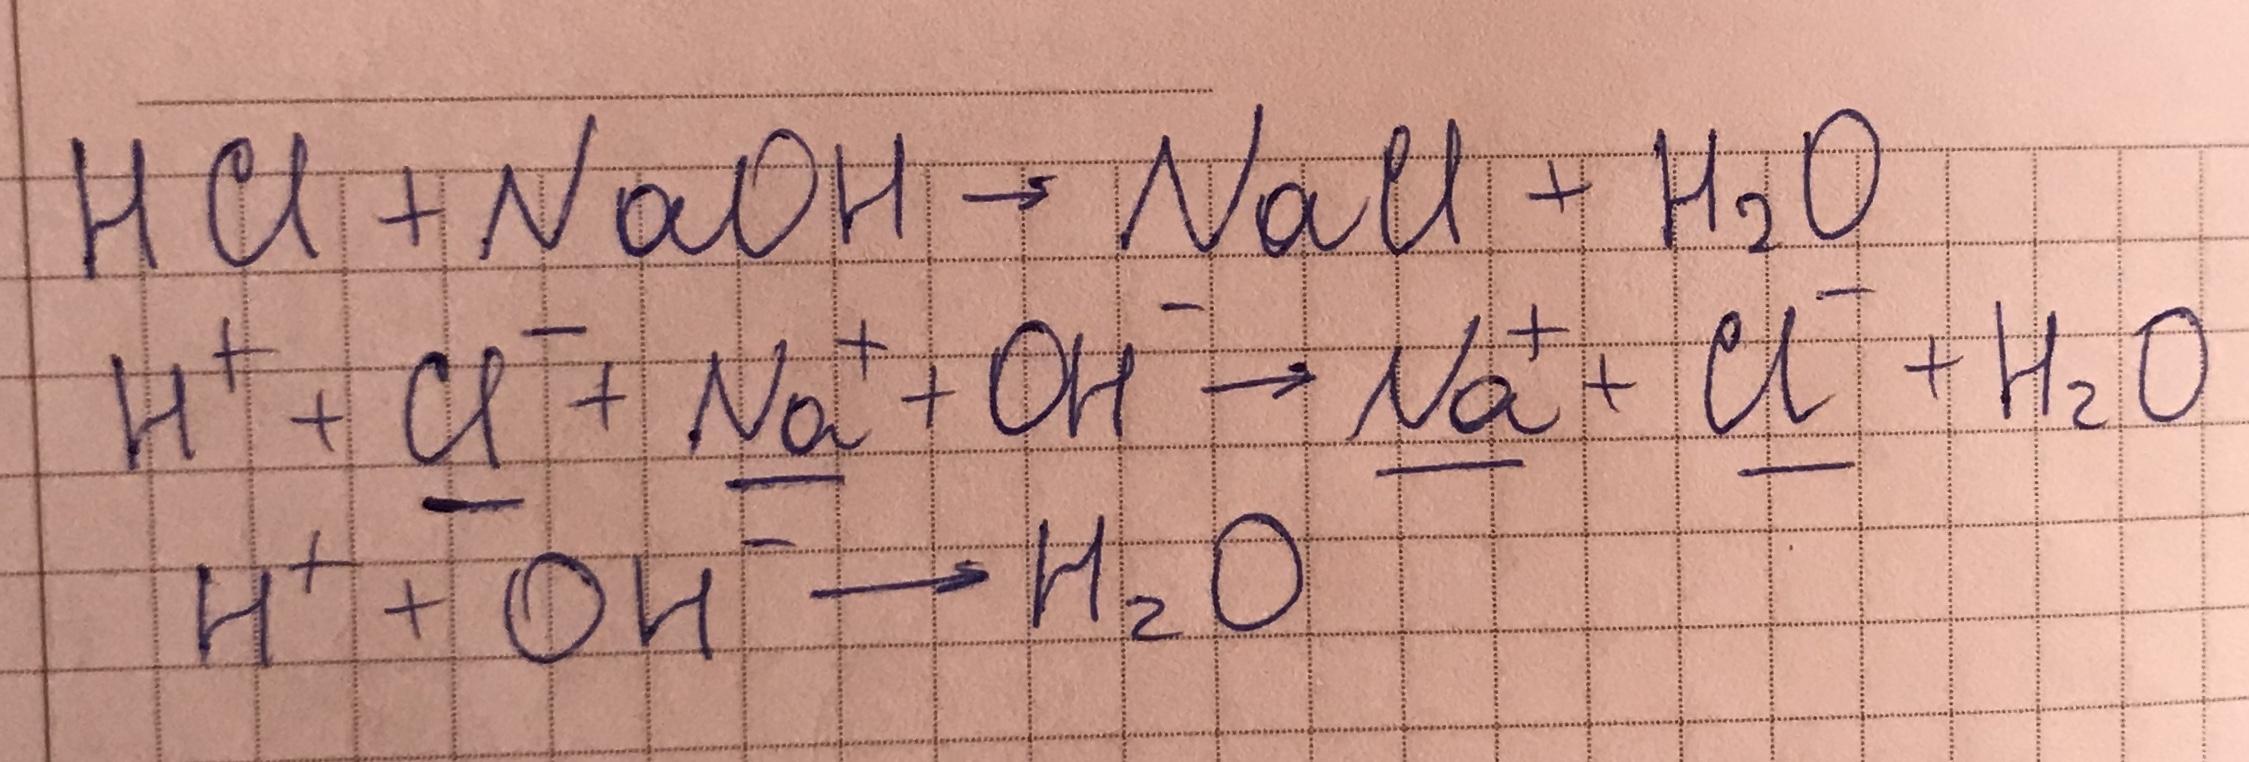 HCl + NaOH → NaCl + H₂O
H⁺ + Cl⁻ + Na⁺ + OH⁻ → Na⁺ + Cl⁻ + H₂O
H⁺ + OH⁻ → H₂O